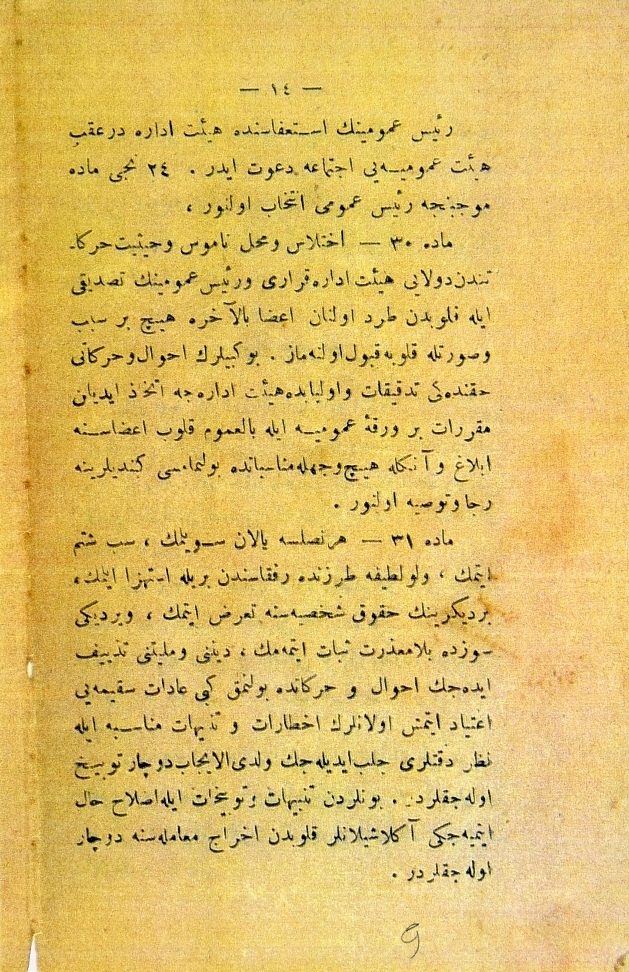 — ١٤ —
رئيس عمومينك استعفاسنده هيئت اداره درعقب
هيئت عموميه‌يى اجتماعه دعوت ايدر . ٢٤ نجى ماده
موجبنجه رئيس عمومى انتخاب اولنور ،
ماده ٣٠ — اختلاس و مخل ناموس وحيثيت حركا-
تندن دولايى هيئت اداره قرارى ورئيس عمومينك تصديقى
ايله قلوبدن طرد اولنان اعضا بالآخره هيچ بر سبب
وصورتله قلوبه قبول اولنه‌ماز . بو كبيلرك احوال وحركاتى
حقنده‌كى تدقيقات واولبابده هيئت اداره‌جه اتخاذ ايديلن
مقررات بر ورقهٔ عموميه ايله بالعموم قلوب اعضاسنه
ابلاغ و آنكله هيچ وجهله مناسباتده بولنمامسى كنديلرينه
رجا وتوصيه اولنور .
ماده ٣١ — هر نصلسه يالان سويلمك ، سب شتم
ايتمك ، ولو لطيفه طرزنده رفقاسندن بريله استهزا ايتمك،
برديكرينك حقوق شخصيه‌سنه تعرض ايتمك ، ويرديكى
سوزده بلامعذرت ثبات ايتمه‌مك ، دينى و مليتنى تزييف
ايده‌جك احوال و حركاتده بولنمق كبى عادات سقيمه‌يى
اعتياد ايتمش اولانلرك اخطارات و تنبيهات مناسبه ايله
نظر دقتلرى جلب ايديله‌جك ولدى الايجاب دوچار توبيخ
اوله‌جقلردر . بونلردن تنبيهات وتوبيخات ايله اصلاح حال
ايتميه‌جكى آكلاشيلانلر قلوبدن اخراج معامله‌سنه دوچار
اوله‌جقلردر .
9